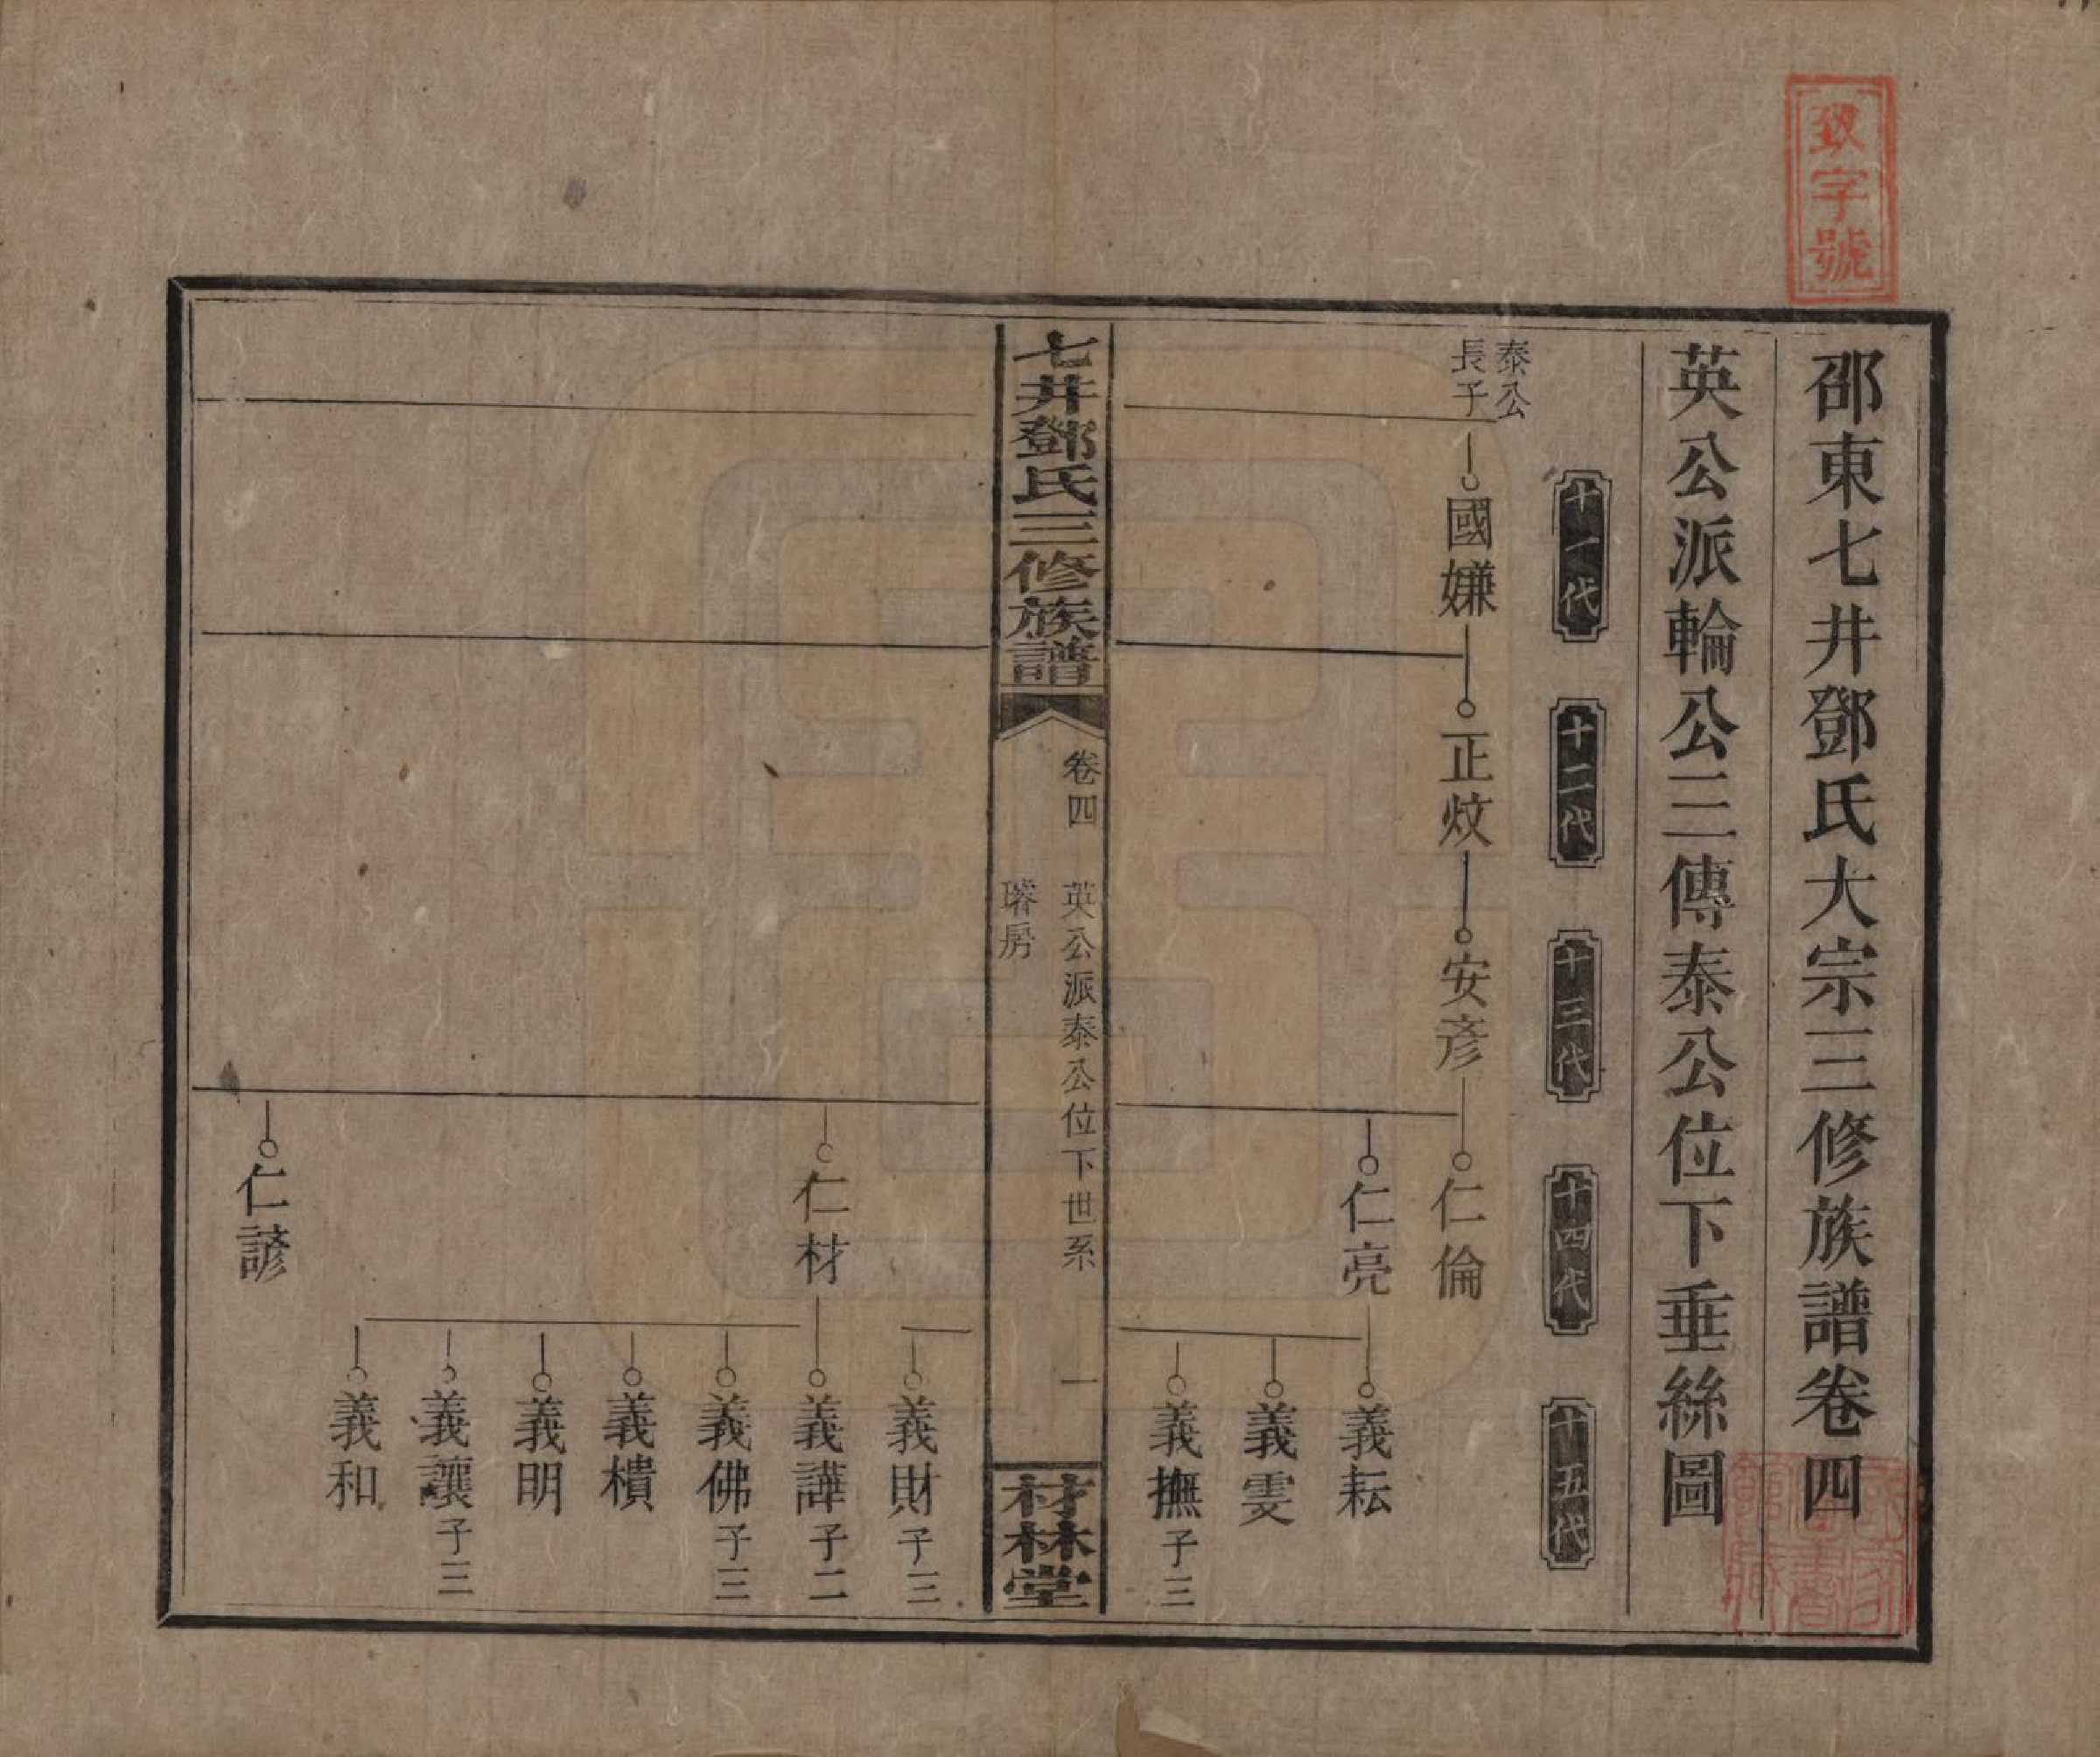 邵東七井鄧氏大宗三修族譜卷四
英公派輪公三傳泰公位下垂絲圖
十一代
十二代
十三代
十四代
十五代
泰公
長子
國嫌
正炆
安彥
仁倫
仁亮
義耘
義雯
義撫 子三
七井鄧氏三修族譜
卷四
英公派泰公位下世系
璿房
一
材林堂
義財 子三
仁材
義譁 子二
義佛 子三
義樻
義明
義讓 子三
義和
仁諺
字號